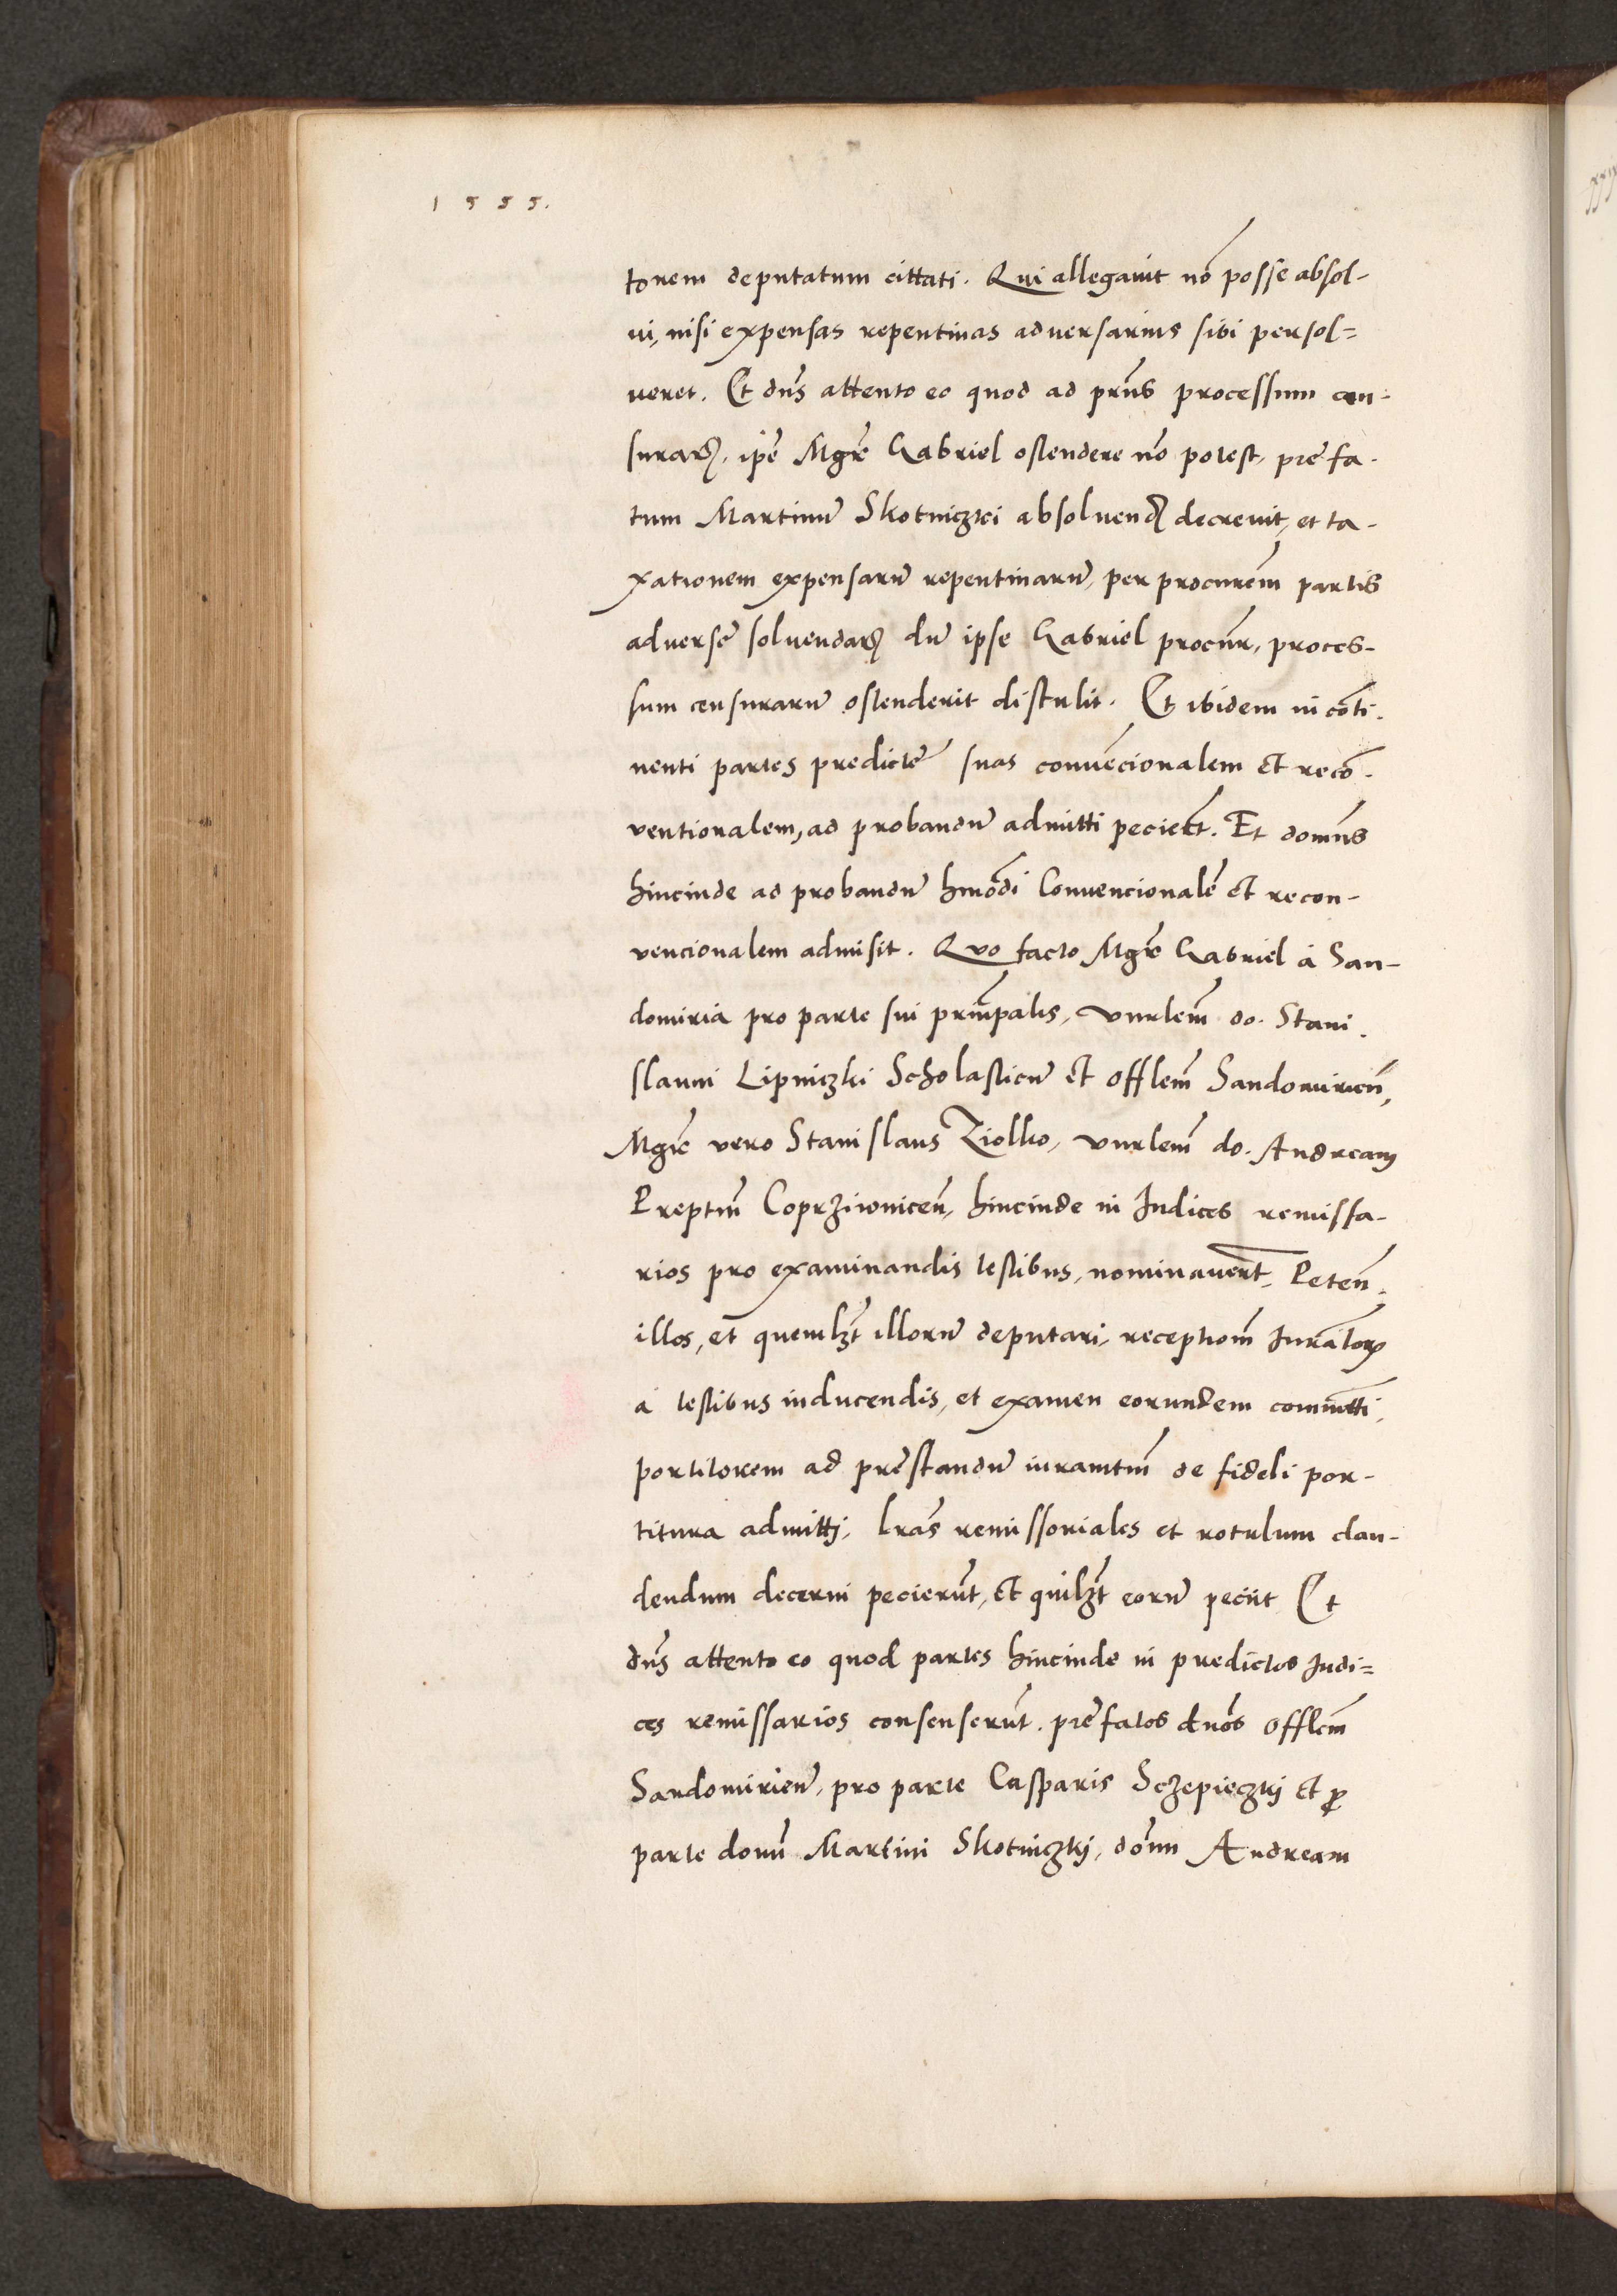 1555.
torem deputatum cittati. Qui allegavit nō posse absol-
vi, nisi expensas repentinas adversarius sibi persol=
veret. Et dns̄ attento eo quod ad prn̄s processum cen-
suraꝝ, ip̄e Mgr̄ Gabriel ostendere nō potest, prefa-
tum Martinū Skotniczki absolvend̄ decrevit, et ta-
xationem expensarū repentinarū, per procurēm partis
adversę solvendaꝝ dū ipse Gabriel procur̄, proces-
sum censurarū ostenderit distulit. Et ibidem in cōti-
nenti partes predictę suas convēcionalem et recō-
ventionalem, ad probandū admitti pecier̄t. Et domn̄s
hincinde ad probandū hmōdi Convencionalē et recon-
vencionalem admisit. Quo facto Mgr̄ Gabriel à San-
domiria pro parte sui prin̄palis, vnrlem̄ do. Stani-
slaum Lipniczki Scholasticū et offlem̄ Sandomirien̄,
Mgr̄ vero Stanislaus Ziolko, vnrlem̄ do. Andream
Preptm̄ Coprziwnicen̄, hincinde in Iudices remissa-
rios pro examinandis testibus, nominaver̄t, Peten̄
illos, et quemlꝫt illorū deputari, receptiom̄ Iuram̄toꝝ
à testibus inducendis, et examen eorundem com̄itti,
portitorem ad prestandū iuramtm̄ de fideli por-
titura admitti, lrās remissoriales et rotulum clau-
dendum decerni pecierūt, et quilꝫt eorū peciit Et
dns̄ attento eo quod partes hincinde in predictos Iudi=
ces remissarios consenserūt, prefatos dnōs offlem̄
Sandomirien̄, pro parte Casparis Sczepieczkj et ꝓ
parte domi̅ Martini Skotniczkj, dōm Andream